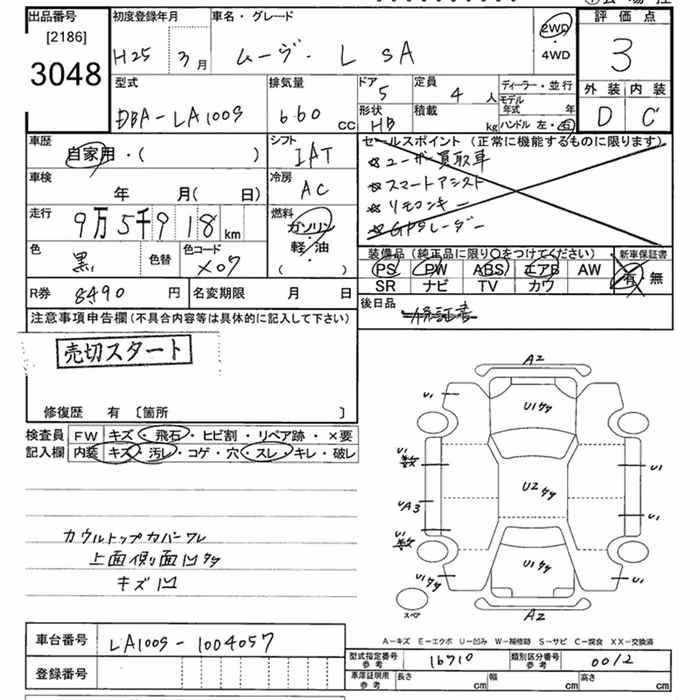 出品番号 初度登録年月 車名・グレード 2WD 評価点
[2186]
3048 H25 3月 ムーヴ. L SA ・4WD 3
型式 排気量 ドア 定員 ディーラー・並行 外装 内装
DBA-LA100S 660 CC 5 4 人 モデル年式 年 D C
形状 積載 ハンドル 左・右
HB kg
車歴 自家用・( ) シフト IAT セールスポイント(正常に機能するものに限ります)
☆ユーザー買取車
車検 年 月( 日) 冷房 AC ☆スマートアシスト
走行 9万5千918km 燃料 ガソリン ☆リモコンキー
軽・油 ☆GPSレーダー
( )
色 黒 色替 色コード X07 装備品(純正品に限り〇をつけてください) 新車保証書
PS PW ABS エアB AW 有・無
R券 8490 円 名変期限 月 日 SR ナビ TV カワ
注意事項申告欄(不具合内容等は具体的に記入して下さい) 後日品 保証書
売切スタート
修復歴 有 〔箇所 〕
検査員 FW キズ・飛石・ヒビ割・リペア跡・×要
記入欄 内装 キズ・汚レ・コゲ・穴・スレ・キレ・破レ
カウルトップカバーワレ
上面側面凹タタ
キズ凹
A2
U1 U1タタ
U1
数 U1
U2タタ
UA3
U1
数 U1
U1タタ U1タタ U1
スペア A2
A-キズ E-エクボ U-凹み W-補修跡 S-サビ C-腐食 XX-交換済
車台番号 LA100S-1004057 型式指定番号 参考 16710 類別区分番号 参考 0012
登録番号 車庫証明用 参考 長さ cm 幅 cm 高さ cm